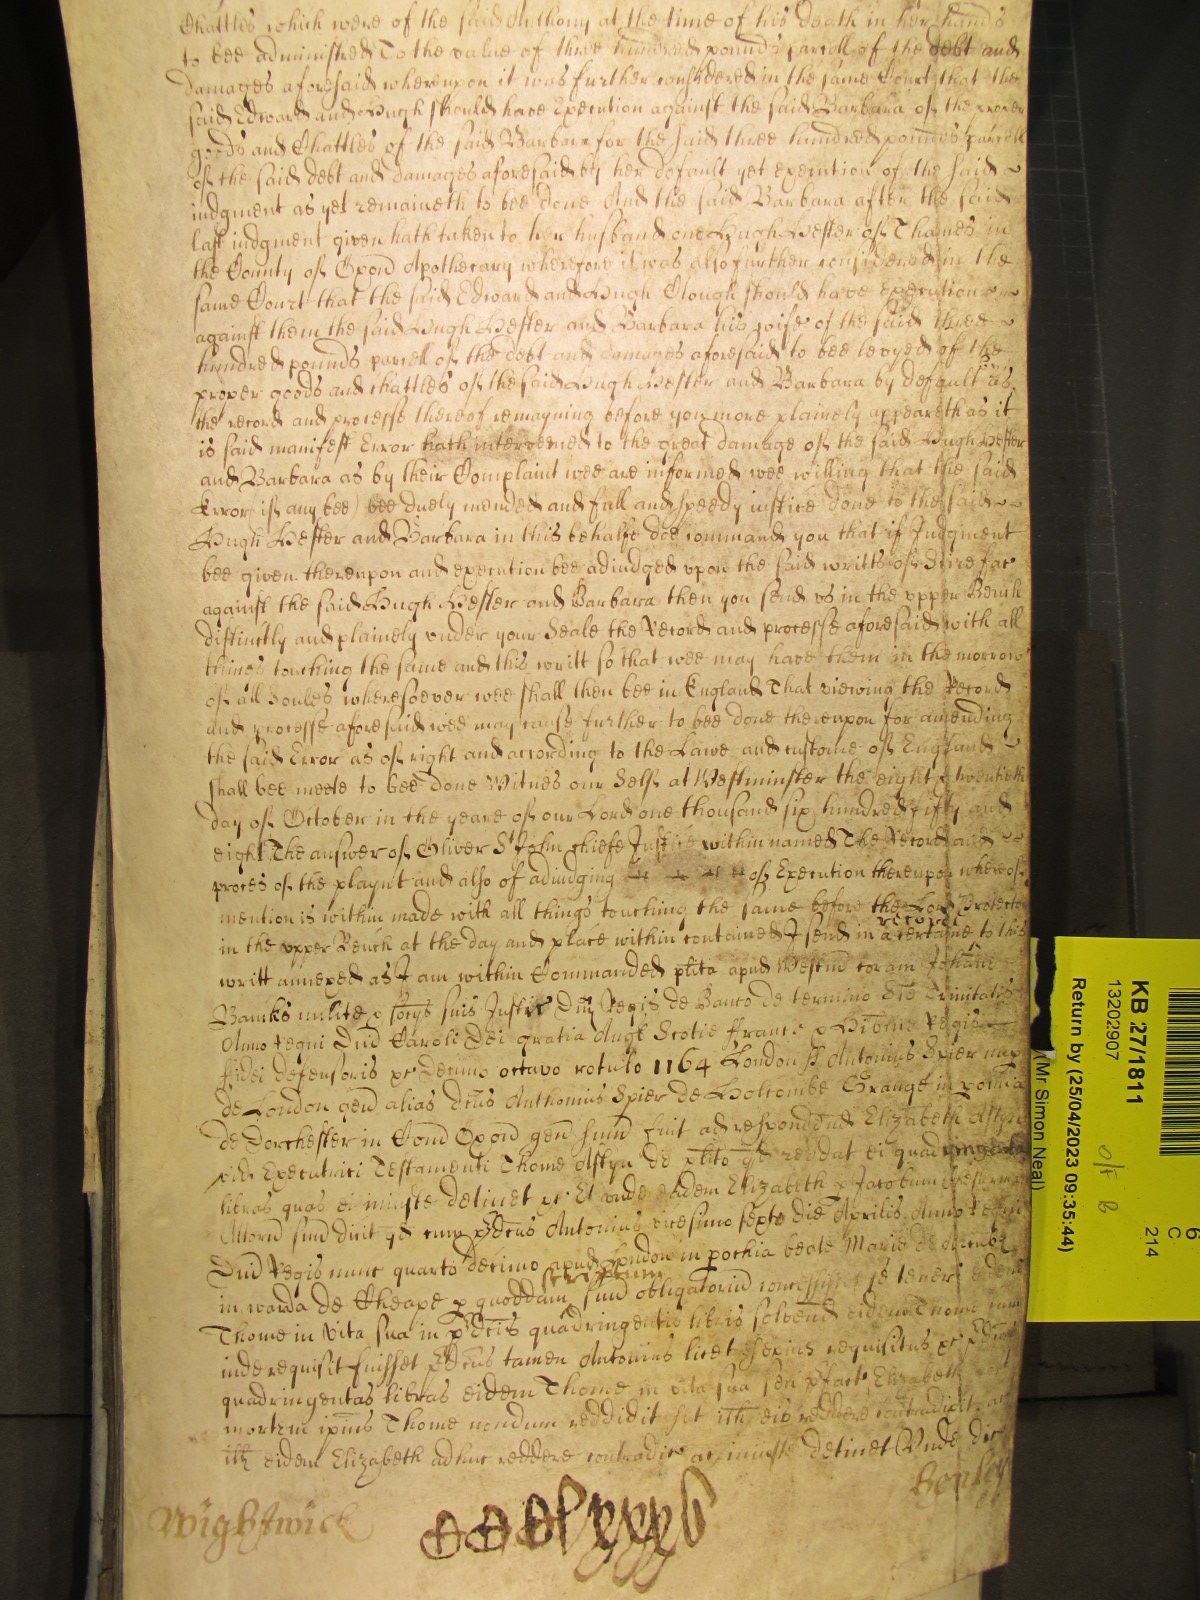 Chattles which were of the said Anthony at the time of his death in her hands
to bee administred To the value of three hundred pounds parcell of the debt and
damages aforesaid whereupon it was further considered in the same Court that the
said Edward and Hugh should have Execution against the said Barbara of the proper
goods and Chattles of the said Barbara for the said three hundred pounds parcell
of the said debt and damages aforesaid by her default yet execution of the said
iudgment as yet remaineth to bee done And the said Barbara after the said
last iudgment given hath taken to her husband one Hugh Hester of Thame in
the County of Oxond Apothecary wherefore it was also further considered in the
same Court that the said Edward and Hugh Clough should have execution
against them the said Hugh Hester and Barbara his wife of the said three
hundred pounds parcell of the debt and damages aforesaid to bee levyed of the
proper goods and chattles of the said Hugh Hester and Barbara by default as
the record and processe thereof remayning before you more plainely appeareth as it
is said manifest Error hath intervened to the great damage of the said Hugh Hester
and Barbara as by their Complaint wee are informed wee willing that the said
Error if any bee) bee duely mended and full and speedy iustice done to the said
Hugh Hester and Barbara in this behalfe doe command you that if Judgment
bee given thereupon and execution bee adiudged upon the said writts of Scire fac
against the said Hugh Hester and Barbara then you send us in the upper Bench
distinctly and plainely under your Seale the Record and processe aforesaid with all
things touching the same and this writt so that wee may have them in the morrow
of all Soules wheresoever wee shall then bee in England That viewing the Record
and processe aforesaid wee may cause further to bee done thereupon for amending
the said Error as of right and according to the Lawe and custome of England
shall bee meete to bee done Witnes our Selfe at Westminster the eight & twentieth
day of October in the yeare of our Lord one thousand six hundred fifty and
eight The answer of Oliver St John chiefe Justice within named The Record and
proces of the playnt and also of adiudging of Execution thereupon whereof
mention is within made with all things touching the same before the Lord Protector
in the upper Bench at the day and place within contained I send in a certaine record to this
writt annexed as I am within Commanded plita apud Westm coram Johanne
Banks milite & socijs suis Justic Dni Regis de Banco de termino Sce Trinitatis
Anno Regni Dni Caroli Dei gratia Angl Scotie Franc & Hibnie Regis
fidei defensoris &c Decimo octavo rotulo 1164 London ss Antonius Spier nup
de London gen alias dcus Anthonius Spier de Holcombe Grange in pochia
de Dorchester in Com Oxond gen sum fuit ad respondend Elizabeth Astyn
vid Executrici Testamenti Thome Astyn de plito qd reddat ei quadringentas
libras quas ei iniuste detinet &c Et unde eadem Elizabeth p Jacobum
Attorn suu dicit qd cum pdcus Antonius vicesimo septo die Aprilis Anno Regni
Dni Regis nunc quarto decimo apud London in pochia beate Marie de Arcubz
in warda de Cheape p quoddam scriptum suu obligatoriu concessisset se teneri eidem
Thome in vita sua in pdcis quadringentis libris solvend eidem Thome cum
inde requisit fuisset pdcus tamen Antonius licet sepius requisitus &c pdcas
quadringentas libras eidem Thome in vita sua seu pfate Elizabeth post
mortem ipius Thome nondum reddidit set ill eis reddere contradixit et
ill eidem Elizabeth adhuc reddere contradic ac iniuste detinet Unde dic
Wightwick
Henley
KB 27/1811
13202907
Return by (25/04/2023 09:35:44)
(Mr Simon Neal)
6
C
214